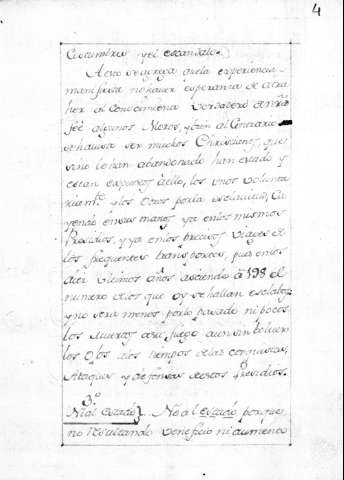 4
Costumbres y el escandalo.
A esto se agrega que la experiencia
manifiesta no haver esperanza de atra
her al Conocimiento Verdadero de nra
feé algunos Moros, y bien al Contrario
se havista ser muchos Christianos, que
sino lo han abandonado han estado y
estan expuestos á ello, los unos volunta
riamte. y los otros por la esclavitud, Ca
yendo en sus manos ya en los mismos
Presidios, y ya en los precisos viages de
los frequentes transportes, pues en los
diez ultimos años asciende á 198 el
numero de los que oy se hallan esclabos
y no será menos por lo pasado ni pocos
los Muertos de su fuego aun sin bolver
los ojos á los tiempos de las conquistas,
Ataques y defensas de estos Presidios.
3.º
Ni al Estado} No al Estado porque
no resultando beneficio ni aumento